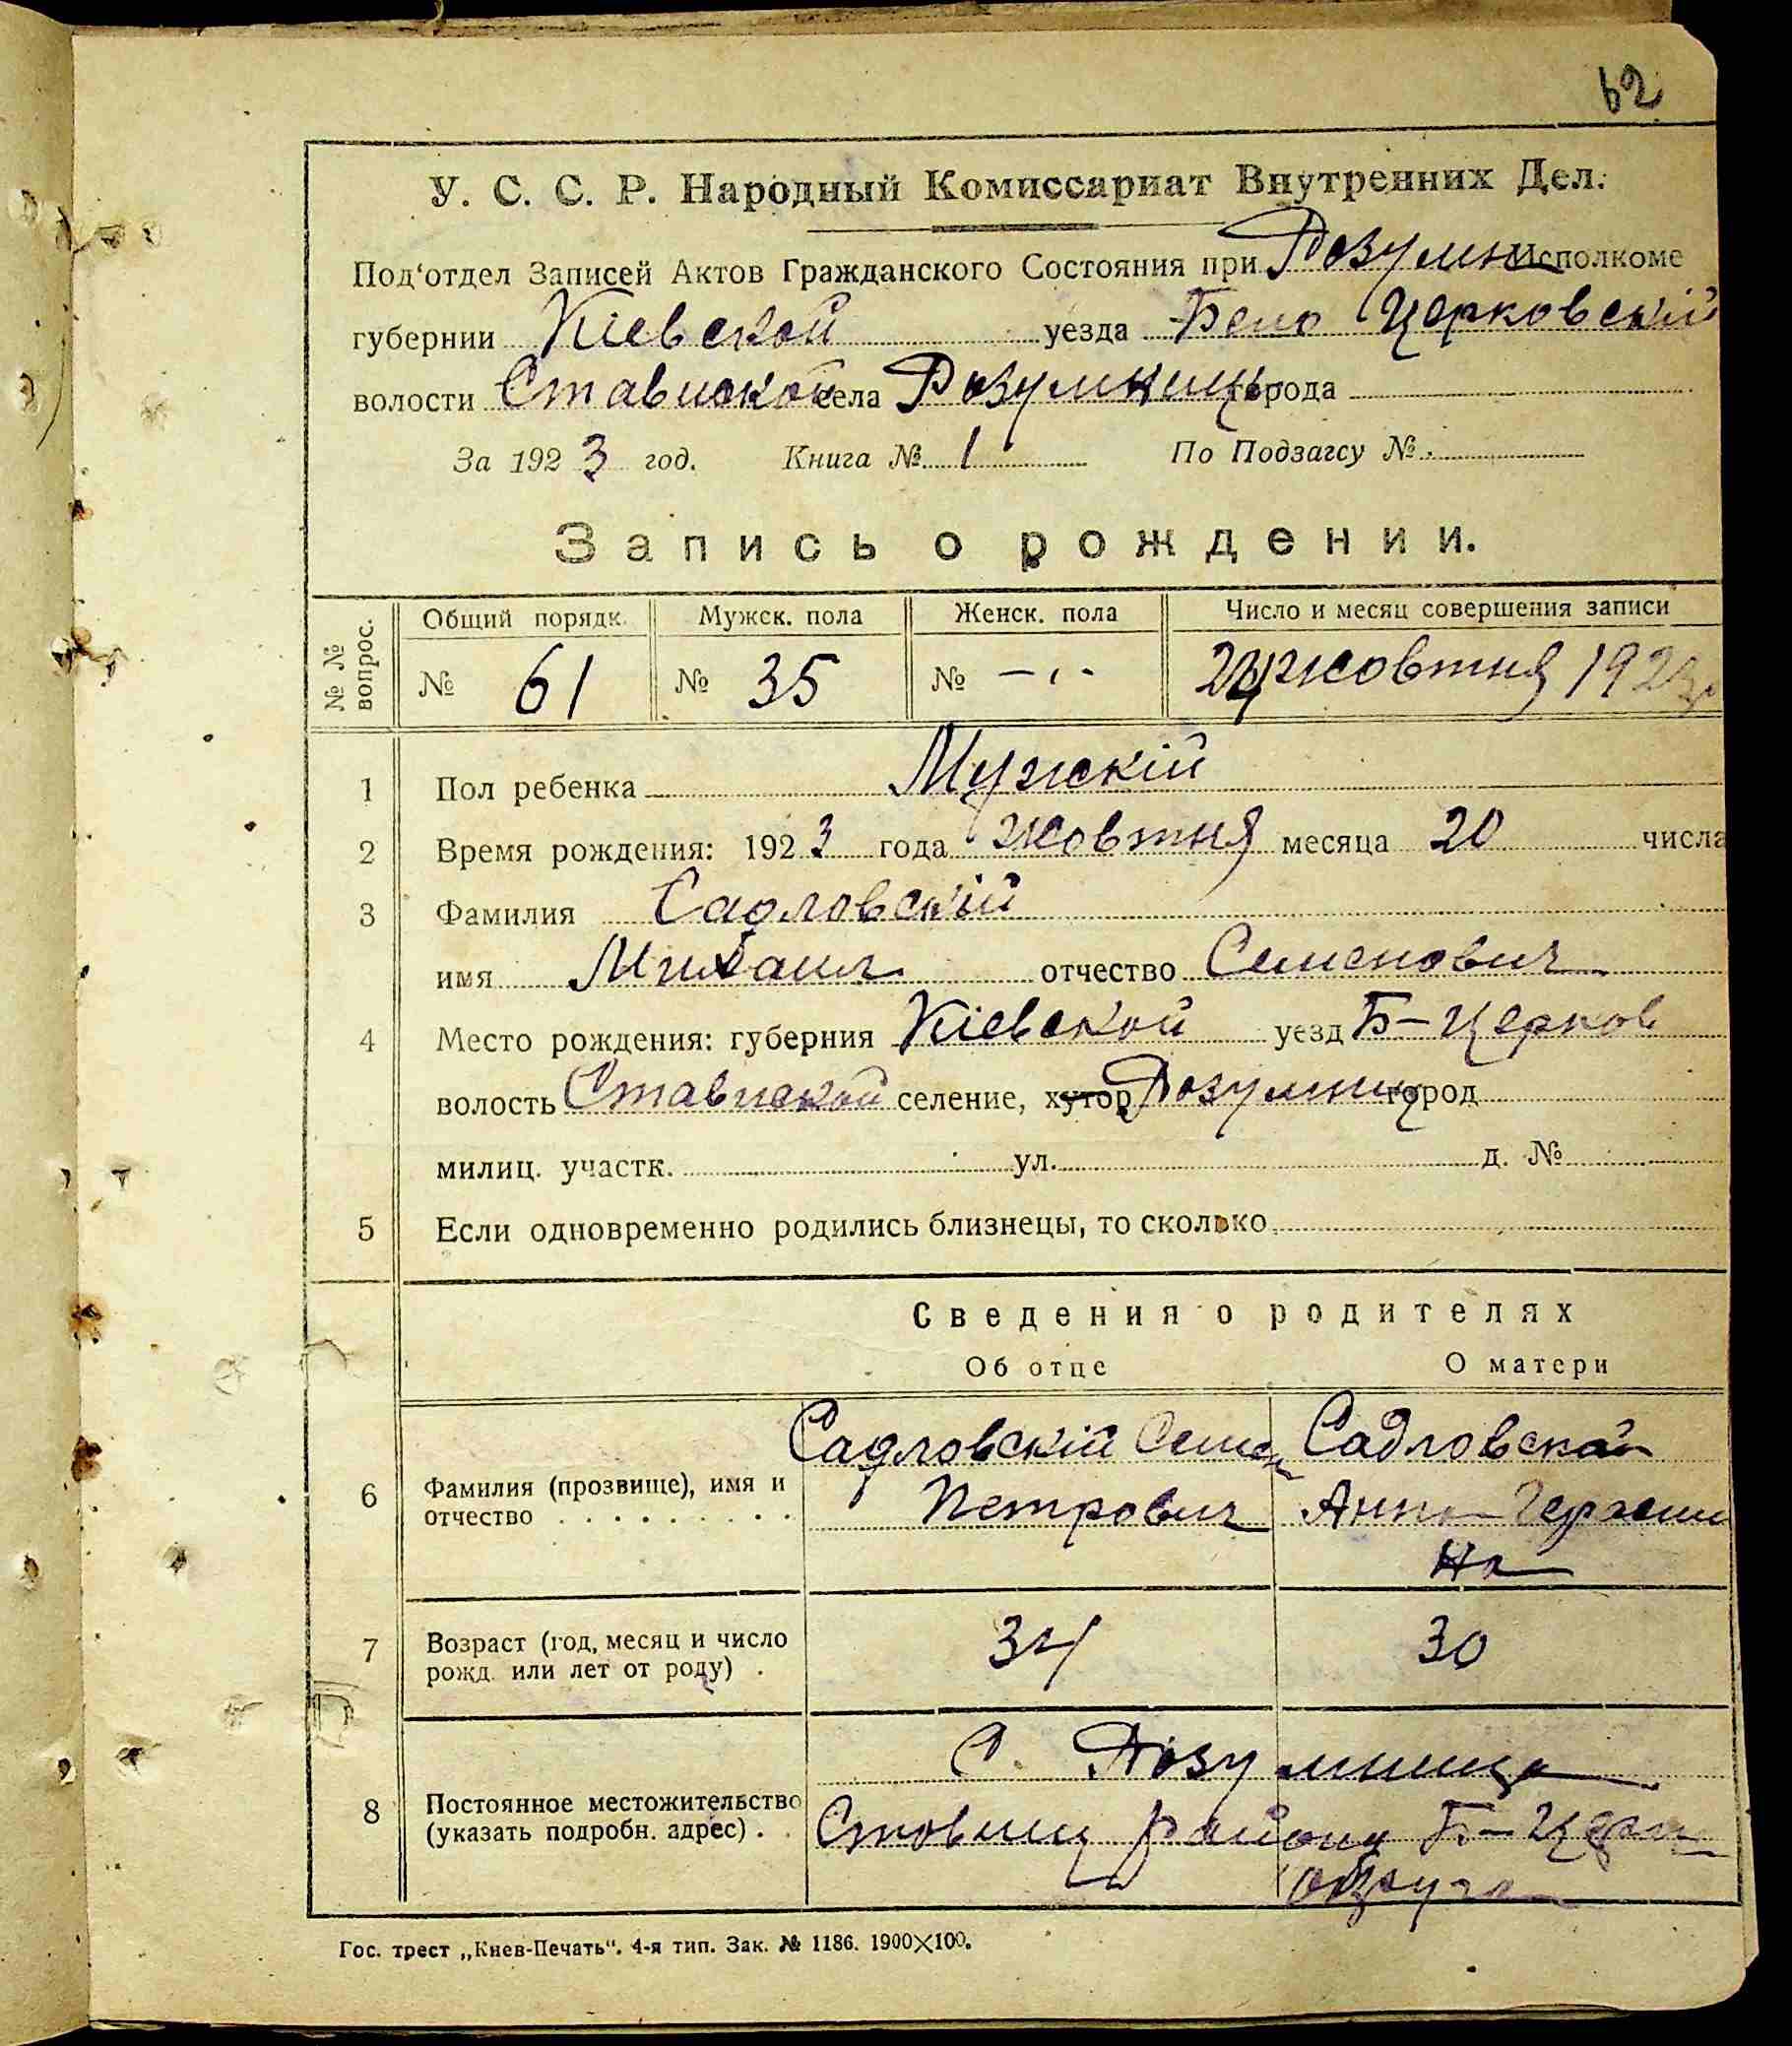 62
У. С. С. Р. Народный Комиссариат Внутренних Дел.
Под'отдел Записей Актов Гражданского Состояния при Розумн Исполкоме
губернии Кіевской уезда Бело Церковскій
волости Ставиской села Розумниц города
За 1923 год. Книга № 1 По Подзагсу №
Запись о рождении.
№ № вопрос. Общий порядк. Мужск. пола Женск. пола Число и месяц совершения записи
№ 61 № 35 № — 24 жовтня 1923
1 Пол ребенка Мужскій
2 Время рождения: 1923 года жовтня месяца 20 числа
3 Фамилия Садловскій
имя Михаил отчество Семенович
4 Место рождения: губерния Кіевской уезд Б-Церков
волость Ставиской селение, хутор Розумниц город
милиц. участк. ул. д. №
5 Если одновременно родились близнецы, то сколько
Сведения о родителях
Об отце О матери
Садловскій Семен Садловская
6 Фамилия (прозвище), имя и отчество Петрович Анна
на
7 Возраст (год, месяц и число рожд. или лет от роду) 34 30
С. Розумница
8 Постоянное местожительство (указать подробн. адрес) Ставищ району Б-Церк
округа
Гос. трест „Киев-Печать“. 4-я тип. Зак. № 1186. 1900×100.